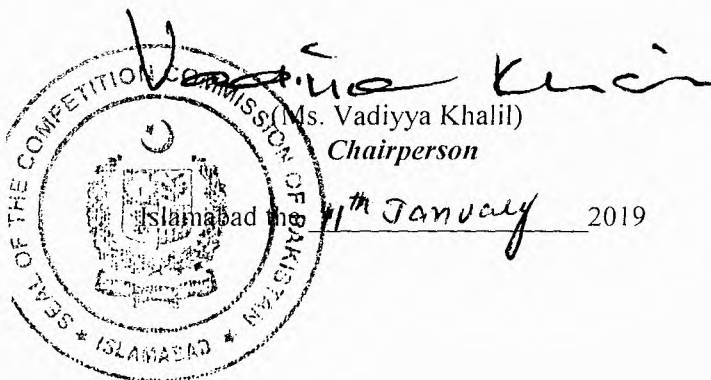 Vadiyya Khalil
(Ms. Vadiyya Khalil)
Chairperson
Islamabad the 11th January 2019
SEAL OF THE COMPETITION COMMISSION OF PAKISTAN
* ISLAMABAD *